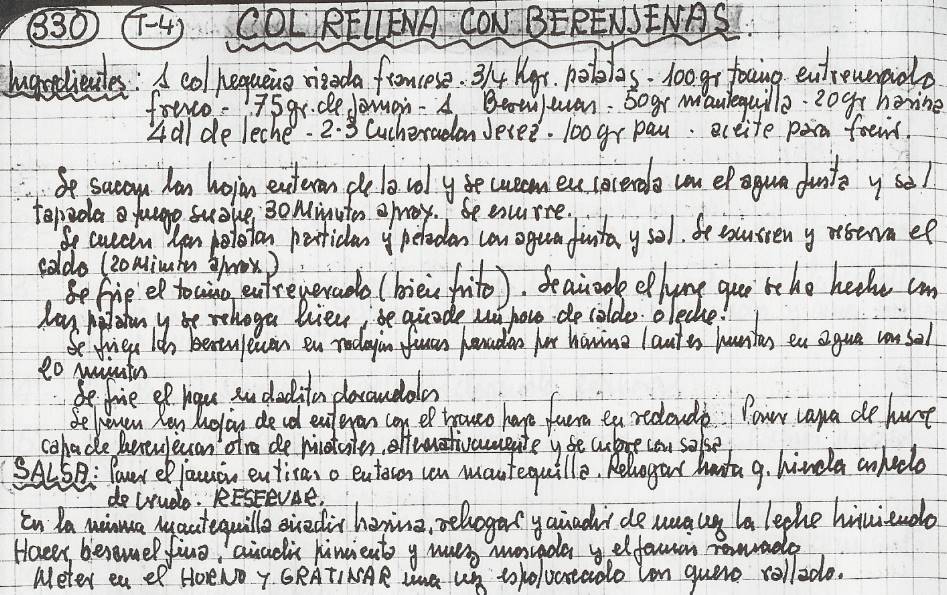 330 T-4) COL RELLENA CON BERENJENAS.
Ingredientes: 1 col pequeña rizada francesa. 3/4 Kgr. patatas - 100 gr tocino entreverado
fresco - 75 gr. de Jamon - 1 Berenjenas - 50 gr mantequilla - 20 gr harina
4 dl de leche - 2-3 Cucharadas Jerez - 100 gr pan - aceite para freir.
Se sacan las hojas enteras de la col y se cuecen en cacerola con el agua justa y sal
tapada a fuego suave, 30 Minutos aprox. Se escurre.
Se cuecen las patatas partidas y peladas con agua justa y sal. Se escurren y reserva el
caldo (20 Minutos aprox.)
Se frie el tocino entreverado (bien frito). Se añade el pure que se ha hecho con
las patatas y se rehoga bien, se añade un poco de caldo o leche.
Se frien las berenjenas en rodajas finas pasadas por harina (antes puestas en agua con sal
minutos
Se frie el pan en daditos dorandolos
Se ponen las hojas de col enteras con el tronco para fuera en redondo. Poner capa de pure
capa de berenjenas otra de picatostes, alternativamente y se cubre con salsa
SALSA: Poner el jamón en tiras o en tacos con mantequilla. Rehogar hasta q. pierda aspecto
de crudo. RESERVAR.
En la misma mantequilla añadir harina, rehogar y añadir de una vez la leche hirviendo
Hacer besamel fina, añadir pimienta y nuez moscada y el jamón
Meter en el HORNO Y GRATINAR una vez espolvoreado con queso rallado.